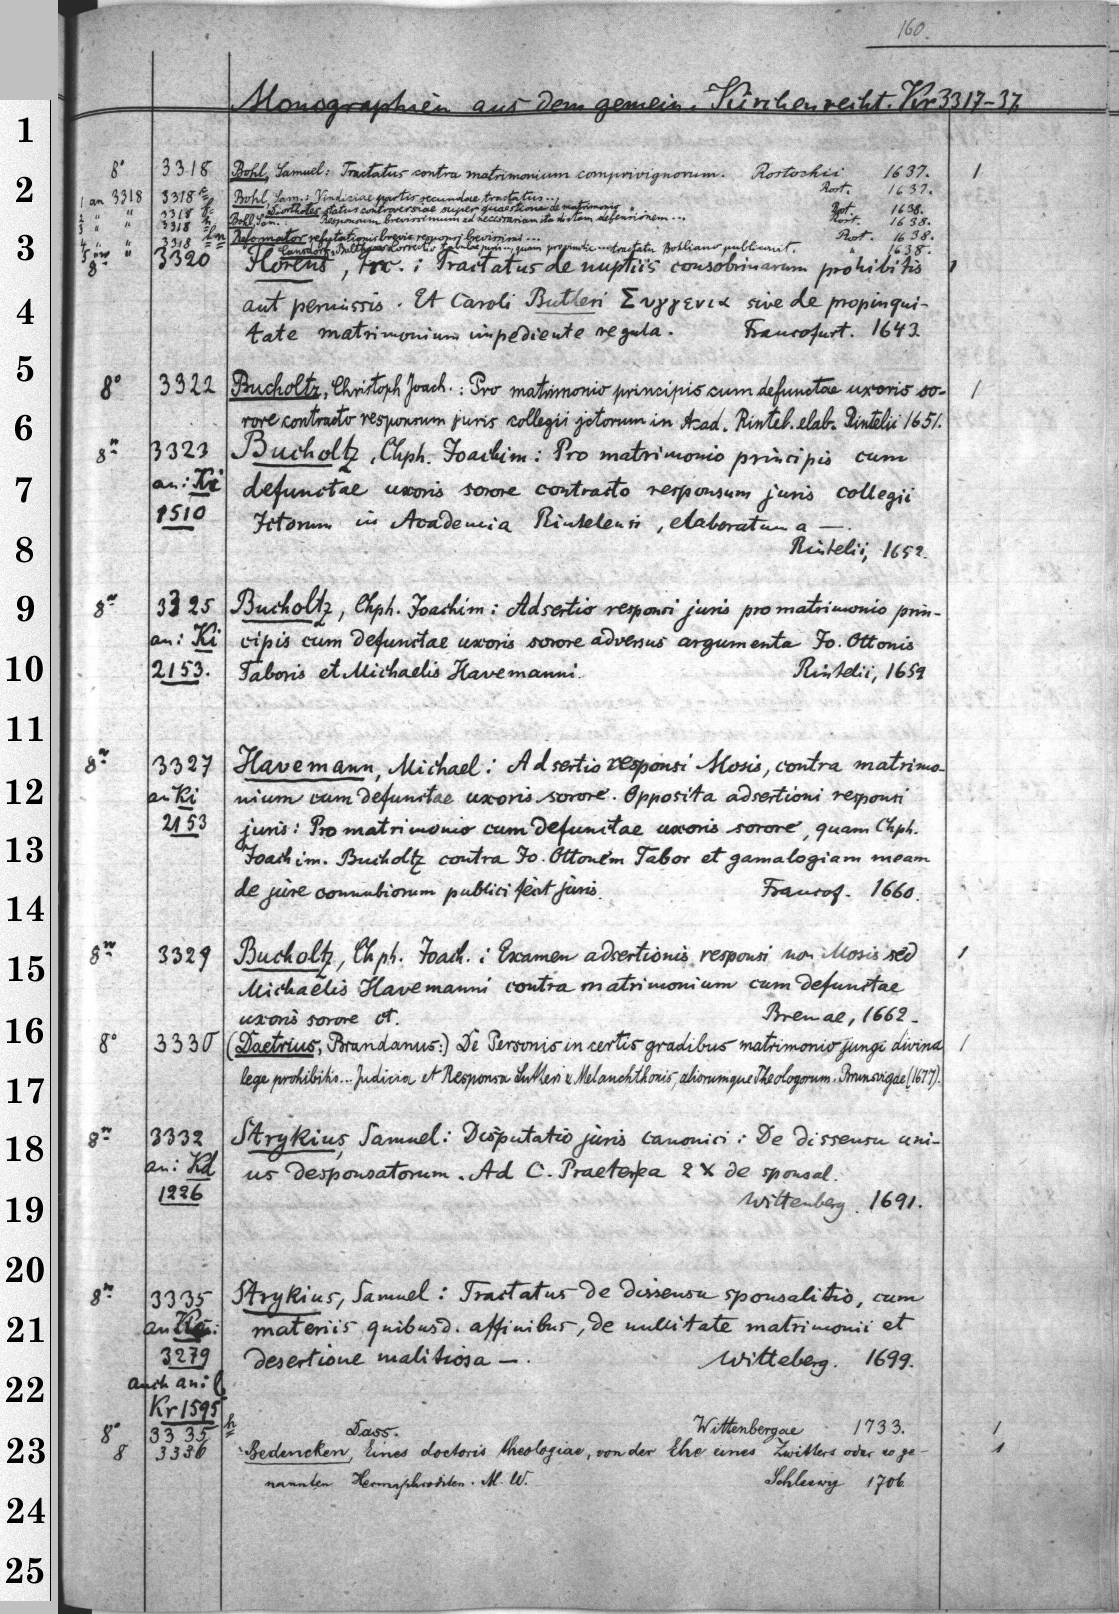 160.
Monographien aus dem gemein. Kirchenrecht. Kr 3317-37
1
8° 3318 Bohl, Samuel: Tractatus contra matrimonium comprivignorum. Rostochii 1637. 1
2
1 an 3318 3318 Bohl, Sam.: Vindiciae partis secundae tractatus... Rost. 1637.
2 " " 3318 Dorothei status controversiae super quaestione de matrimonio Rost. 1638.
3 " " 3318 Bohl, Sam. Responsum brevissimum ad necessariam ita dictam defensionem... Rost. 1638.
4 " " 3318 Reformator refutationis brevis responsi brevissimi... Rost. 1638.
3
5 " " tractatu Bohliano publicavit. " 1638.
8° 3320 Florens, Frc.: Tractatus de nuptiis consobrinarum prohibitis 1
aut permissis. Et Caroli Butleri Συγγενια sive de propinqui-
4
tate matrimonium impediente regula. Francofurt. 1643.
5
8° 3322 Bucholtz, Christoph Joach.: Pro matrimonio principis cum defunctae uxoris so- 1
6
rore contracto responsum juris collegii jctorum in Acad. Rintel. elab. Rintelii 1651.
8° 3323 Bucholtz, Chph. Joachim: Pro matrimonio principis cum
7
an: Ki defunctae uxoris sorore contracto responsum juris collegii
1510 Ictorum in Academia Rintelensi, elaboratum a —.
8
Rintelii, 1652.
9
8° 3325 Bucholtz, Chph. Joachim: Adsertio responsi juris pro matrimonio prin-
an: Ki cipis cum defunctae uxoris sorore adversus argumenta Jo. Ottonis
10
2153. Taboris et Michaelis Havemanni. Rintelii, 1659
11
8° 3327 Havemann, Michael: Adsertio responsi Mosis, contra matrimo-
12
an Ki nium cum defunctae uxoris sorore. Opposita adsertioni responsi
2153 juris: Pro matrimonio cum defunctae uxoris sorore, quam Chph.
13
Joachim. Bucholtz contra Jo. Ottonem Tabor et gamalogiam meam
de jure connubiorum publici fecit juris. Francof. 1660.
14
8° 3329 Bucholtz, Chph. Joach.: Examen adsertionis responsi non Mosis sed 1
15
Michaelis Havemanni contra matrimonium cum defunctae
16
uxoris sorore ct. Bremae, 1662.
8° 3330 (Daetrius, Brandanus:) De Personis in certis gradibus matrimonio jungi divina 1
17
lege prohibitis... Judicia et Responsa Lutheri & Melanchthonis, aliorumque Theologorum. Brunsvigae (1677).
18
8° 3332 Strykius, Samuel: Disputatio juris canonici: De dissensu uni-
an: Kd us desponsatorum. Ad C. Praeterea 2 X de sponsal.
19
1226 Wittenberg. 1691.
20
8° 3335 Strykius, Samuel: Tractatus de dissensu sponsalitio, cum
21
an materiis quibusd. affinibus, de nullitate matrimonii et
3279 desertione malitiosa —. Witteberg. 1699.
22
auch an:
Kr 1595
8° 3335 h Dass. Wittenbergae 1733. 1
23
8 3336 Bedencken, Eines doctoris theologiae, von der Ehe eines Zwitters oder so ge- 1
nannten Hermaphroditen. M. W. Schleswig 1706.
24
25